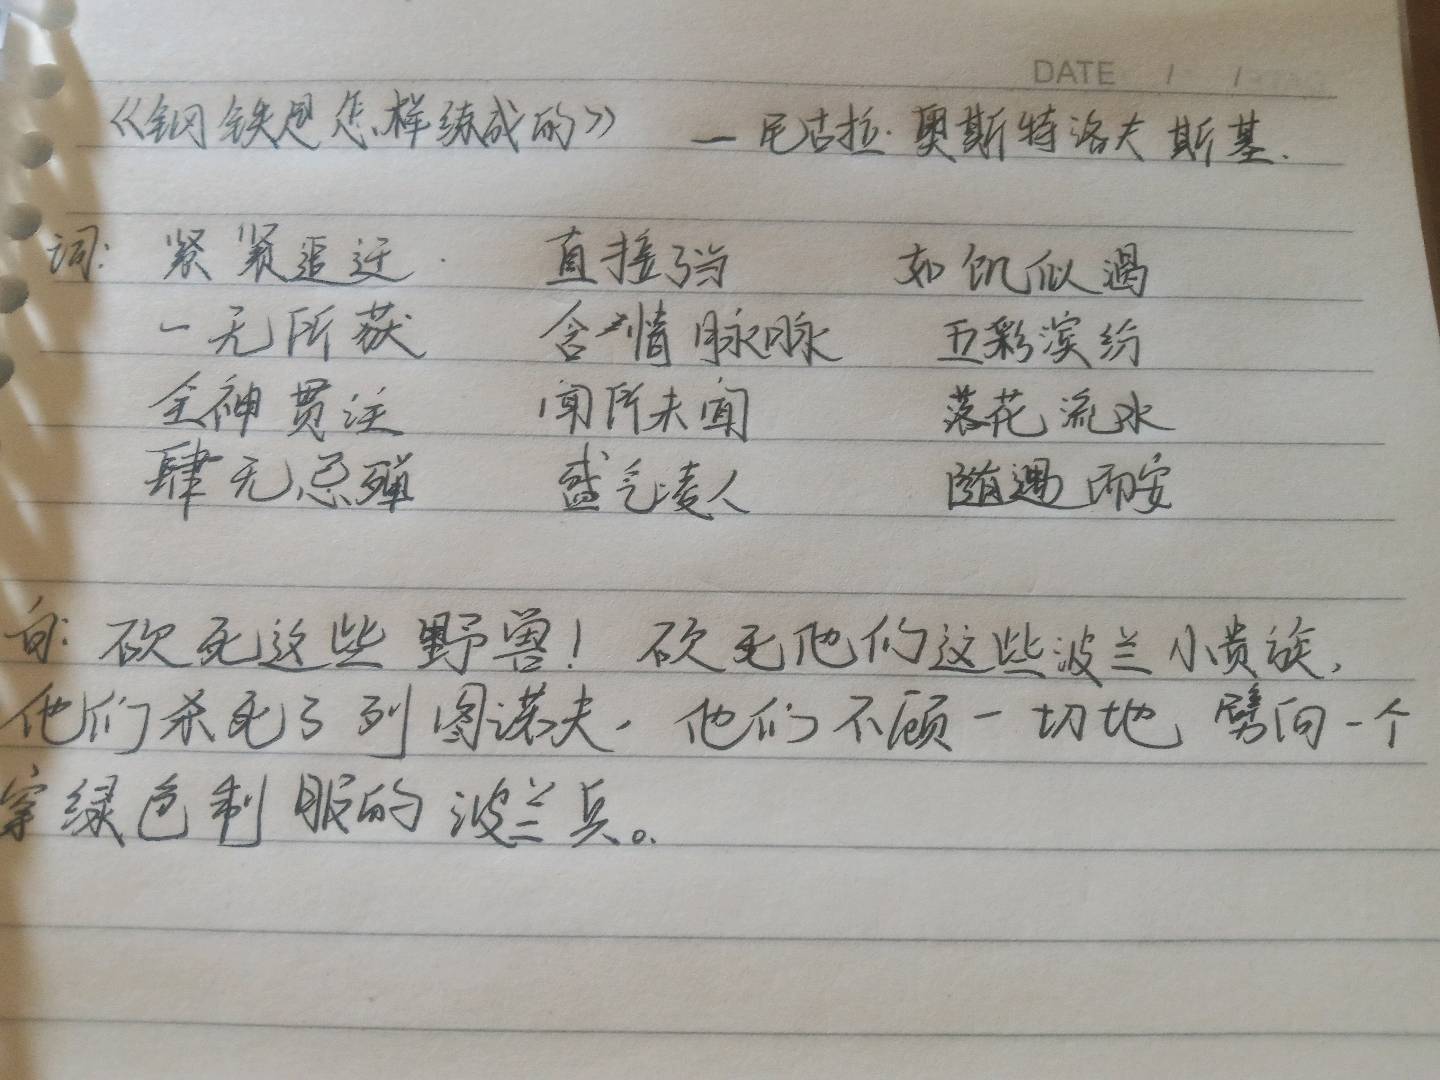 DATE / /
《钢铁是怎样练成的》 — 尼古拉·奥斯特洛夫斯基.
词: 紧紧追 直接 如饥似渴
一无所获 含情脉脉 五彩滨纷
全神贯注 闻所未闻 落花流水
肆无忌殚 盛气凌人 随遇而安
句: 砍死这些野兽! 砍死他们这些波兰小贵族,
他们杀死了列图诺夫. 他们不顾一切地 劈向一个
穿绿色制服的波兰兵。